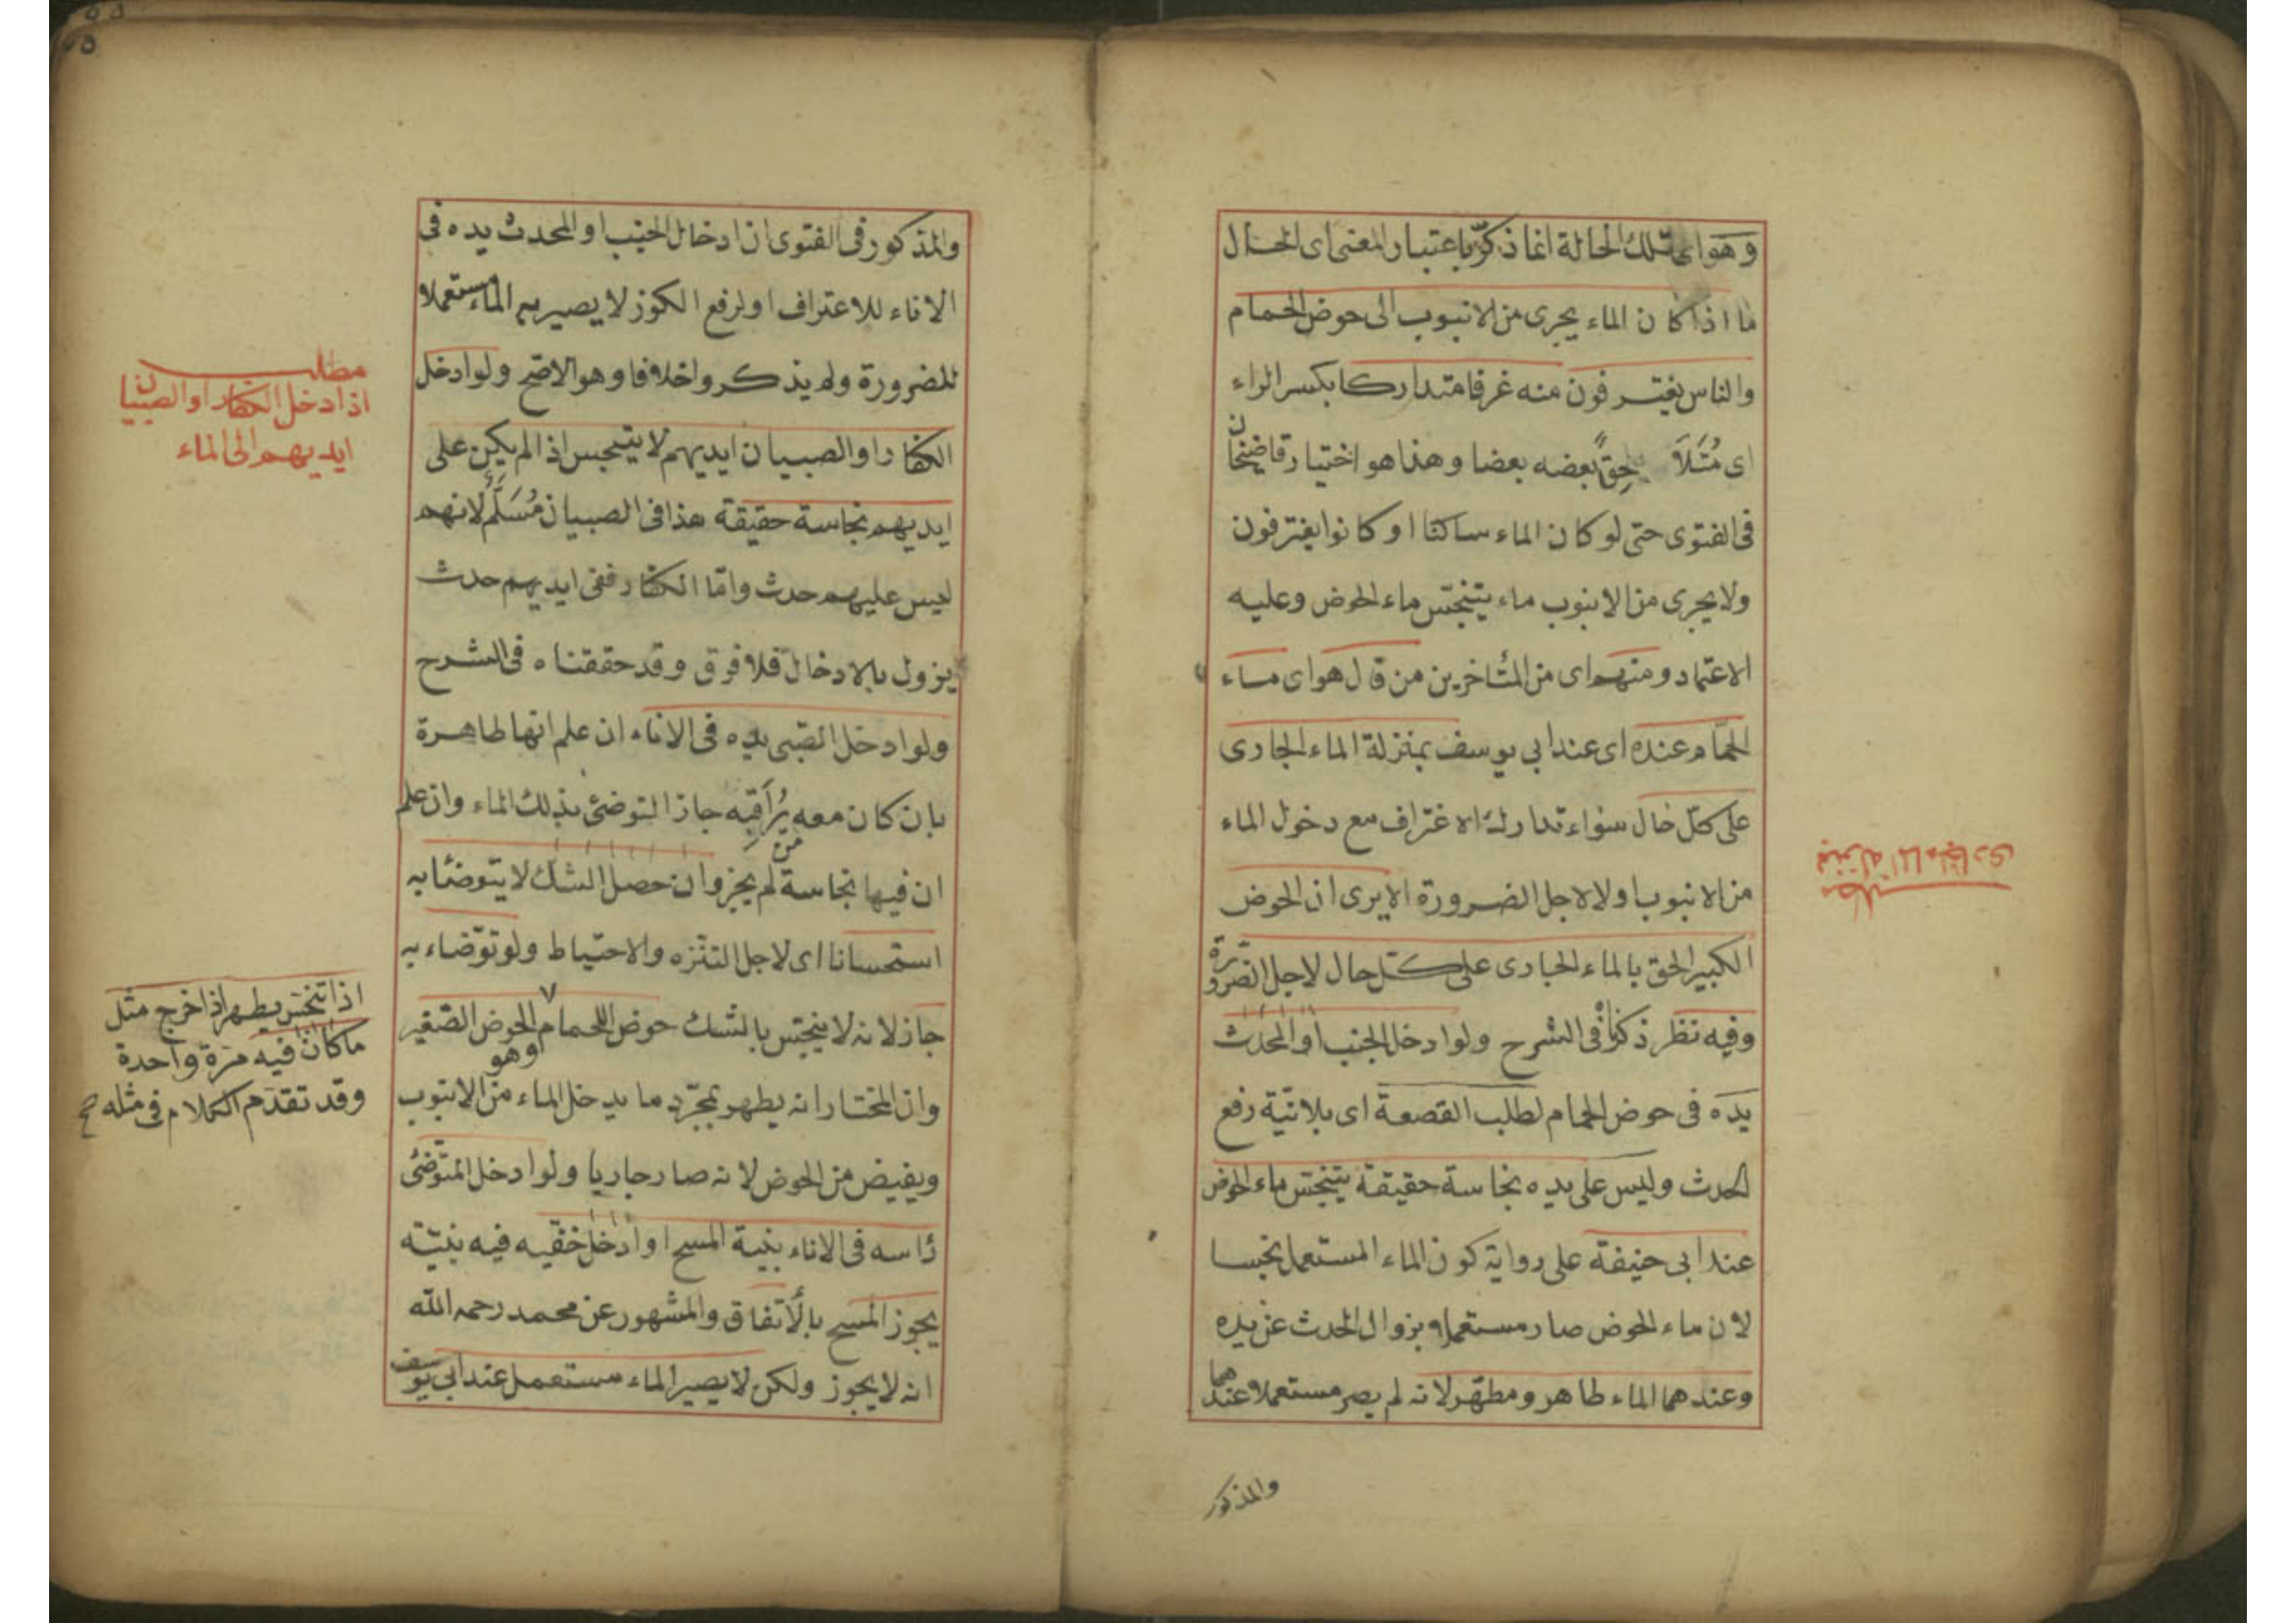 وهو اى تلك الحالة انما ذكّر باعتبار المعنى اى الحال
ما اذا كان الماء يجرى من الانبوب الى حوض الحمام
والناس يغترفون منه غرفا متداركا بكسر الراء
اى مُتَلَاحِقًا بعضه بعضا وهذا هو اختيار قاضيخان
فى الفتوى حتى لو كان الماء ساكنا او كانوا يغترفون
ولا يجرى من الانبوب ماء يتنجّس ماء الحوض وعليه
الاعتماد ومنهم اى من المتأخرين من قال هو اى ماء
الحمّام عنده اى عند ابى يوسف بمنزلة الماء الجارى
على كلّ حال سواء تدارك الاغتراف مع دخول الماء
من الانبوب او لا لاجل الضرورة الا يرى ان الحوض
الكبير الحق بالماء الجارى على كلّ حال لاجل الضرورة
وفيه نظر ذكرناه فى الشرح ولو ادخل الجنب او المحدث
يده فى حوض الحمام لطلب القصعة اى بلا نيّة رفع
الحدث وليس على يده نجاسة حقيقة يتنجّس ماء الحوض
عند ابى حنيفة على رواية كون الماء المستعمل نجسا
لان ماء الحوض صار مستعملا بزوال الحدث عن يده
وعندهما الماء طاهر ومطهّر لانه لم يصر مستعملا عندهما
والمذكور
مطلب
بمنزلة الماء الجارى
والمذكور فى الفتوى ان ادخال الجنب او المحدث يده فى
الاناء للاعتراف او لرفع الكوز لا يصير به الماء مستعملا
للضرورة ولم يذكروا خلافا وهو الاصح ولو ادخل
الكفار او الصبيان ايديهم لا يتنجس اذا لم يكن على
ايديهم نجاسة حقيقة هذا فى الصبيان مُسَلَّمٌ لانهم
ليس عليهم حدث وامّا الكفّار ففى ايديهم حدث
يزول بالادخال فلا فرق وقد حققناه فى الشرح
ولو ادخل الصّبى يده فى الاناء ان علم انها طاهرة
بان كان معه من يُرَاقِبُه جاز التوضئ بذلك الماء وان علم
ان فيها نجاسة لم يجز وان حصل الشك لا يتوضّأ به
استحسانا اى لاجل التنزّه والاحتياط ولو توضّاء به
جاز لانه لا ينجّس بالشك حوض الحمام او الحوض الصّغير
وهو
وان المختار انه يطهر بمجرّد ما يدخل الماء من الانبوب
ويفيض من الحوض لانه صار جاريا ولو ادخل المتوضّئ
رأسه فى الاناء بنية المسح او ادخل خفّيه فيه بنيّته
يجوز المسح بالاتّفاق والمشهور عن محمد رحمه الله
انه لا يجوز ولكن لا يصير الماء مستعمل عند ابى يوسف
مطلب
اذا ادخل الكفار او الصبيان
ايديهم الى الماء
اذا تنجّس يطهر اذا خرج مثل
ما كان فيه مرّة واحدة
وقد تقدّم الكلام فى مثله صح